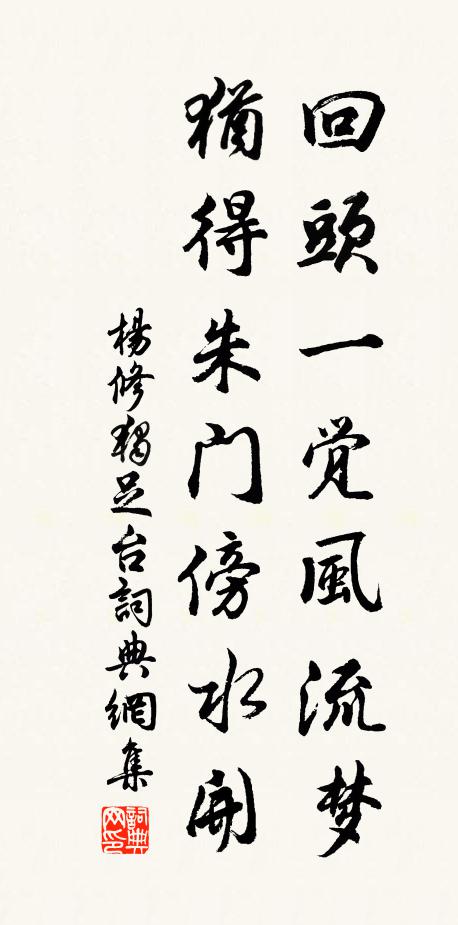 回頭一觉風流梦
猶得朱门傍水開
楊修獨足台詞典網集
詞典
网印